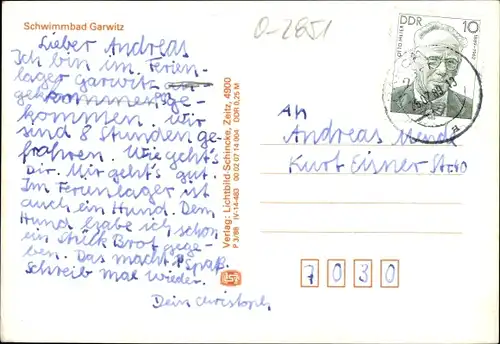 Schwimmbad Garwitz
O-2851
Lieber Andreas
Ich bin im Ferien-
lager Garwitz
gekommen ge-
kommen. Wir
sind 8 Stunden ge-
frahren. Wie geht's
Dir. Mir geht's gut.
Im Ferienlager ist
auch ein Hund. Dem
Hund habe ich schon
ein Stück Brot gege-
ben. Das macht Spaß.
Schreib mal wieder.
Dein Christoph
Verlag: Lichtbild-Schincke, Zeitz, 4900
V 3/88 IV-14-483 00 02 07 14 004 DDR 0,25 M
DDR 10
OTTO MEIER
An
Andreas
Kurt Eisner Str. 40
7030